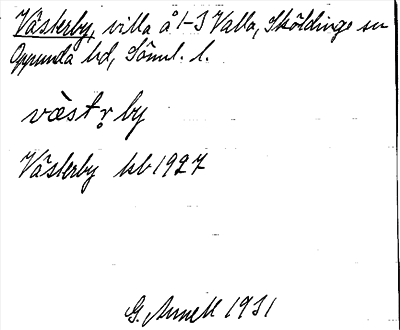 Västerby, villa å 1-3 Valla, Sköldinge sn
Oppunda hd, Söml. l.
væ̀str̥ by
Västerby kb 1927
G. Arnell 1931